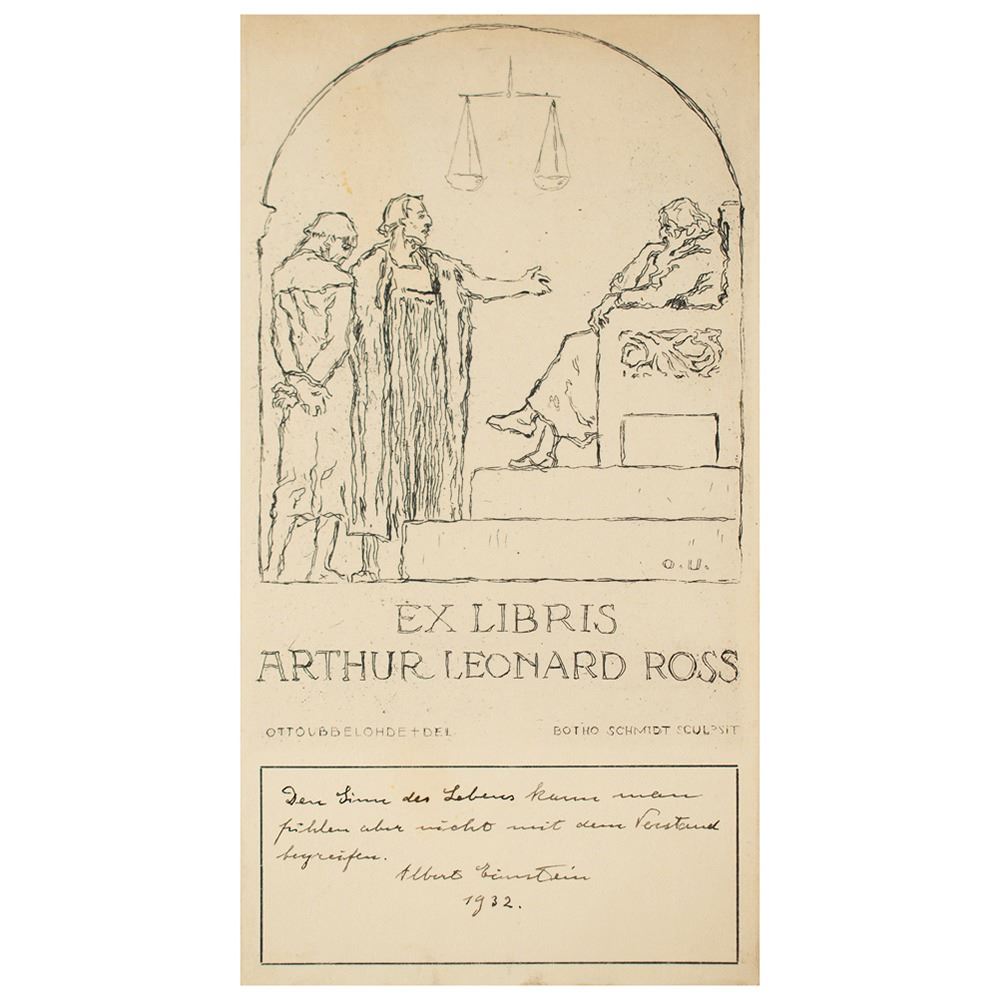 O.U.
EX LIBRIS
ARTHUR LEONARD ROSS
OTTOUBBELOHDE + DEL.
BOTHO SCHMIDT SCULPSIT
Den Sinn des Lebens kann man
fühlen aber nicht mit dem Verstand
begreifen.
Albert Einstein
1932.